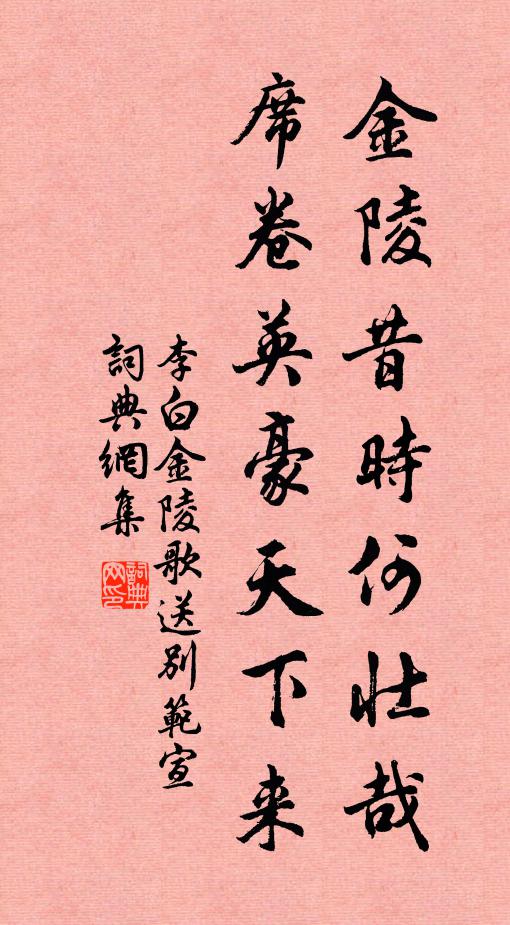 金陵昔時何壯哉
席卷英豪天下来
李白金陵歌送别範宣
詞典網集
詞典
网印